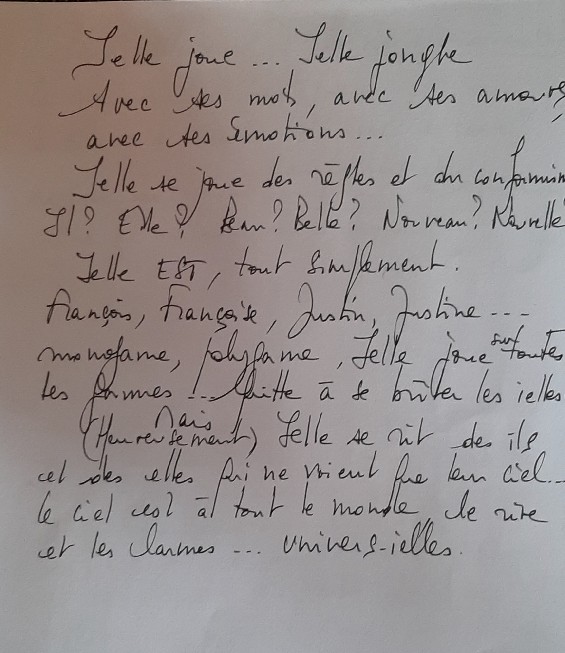 Ielle joue ... Ielle jongle
Avec ses mots, avec ses amours,
avec ses émotions...
Ielle se joue des règles et du conformism
Il? Elle? Beau? Belle? Nouveau? Nouvelle
Ielle EST, tout simplement.
François, Françoise, Justin, Justine ---
monogame, polygame, Ielle joue sur toutes
les gammes ... Quitte à se brûler les ielles
(Heureusement) Mais Ielle se rit des ils
et des elles qui ne voient que leur ciel...
le ciel est à tout le monde, le rire
et les larmes ... univers-ielles.